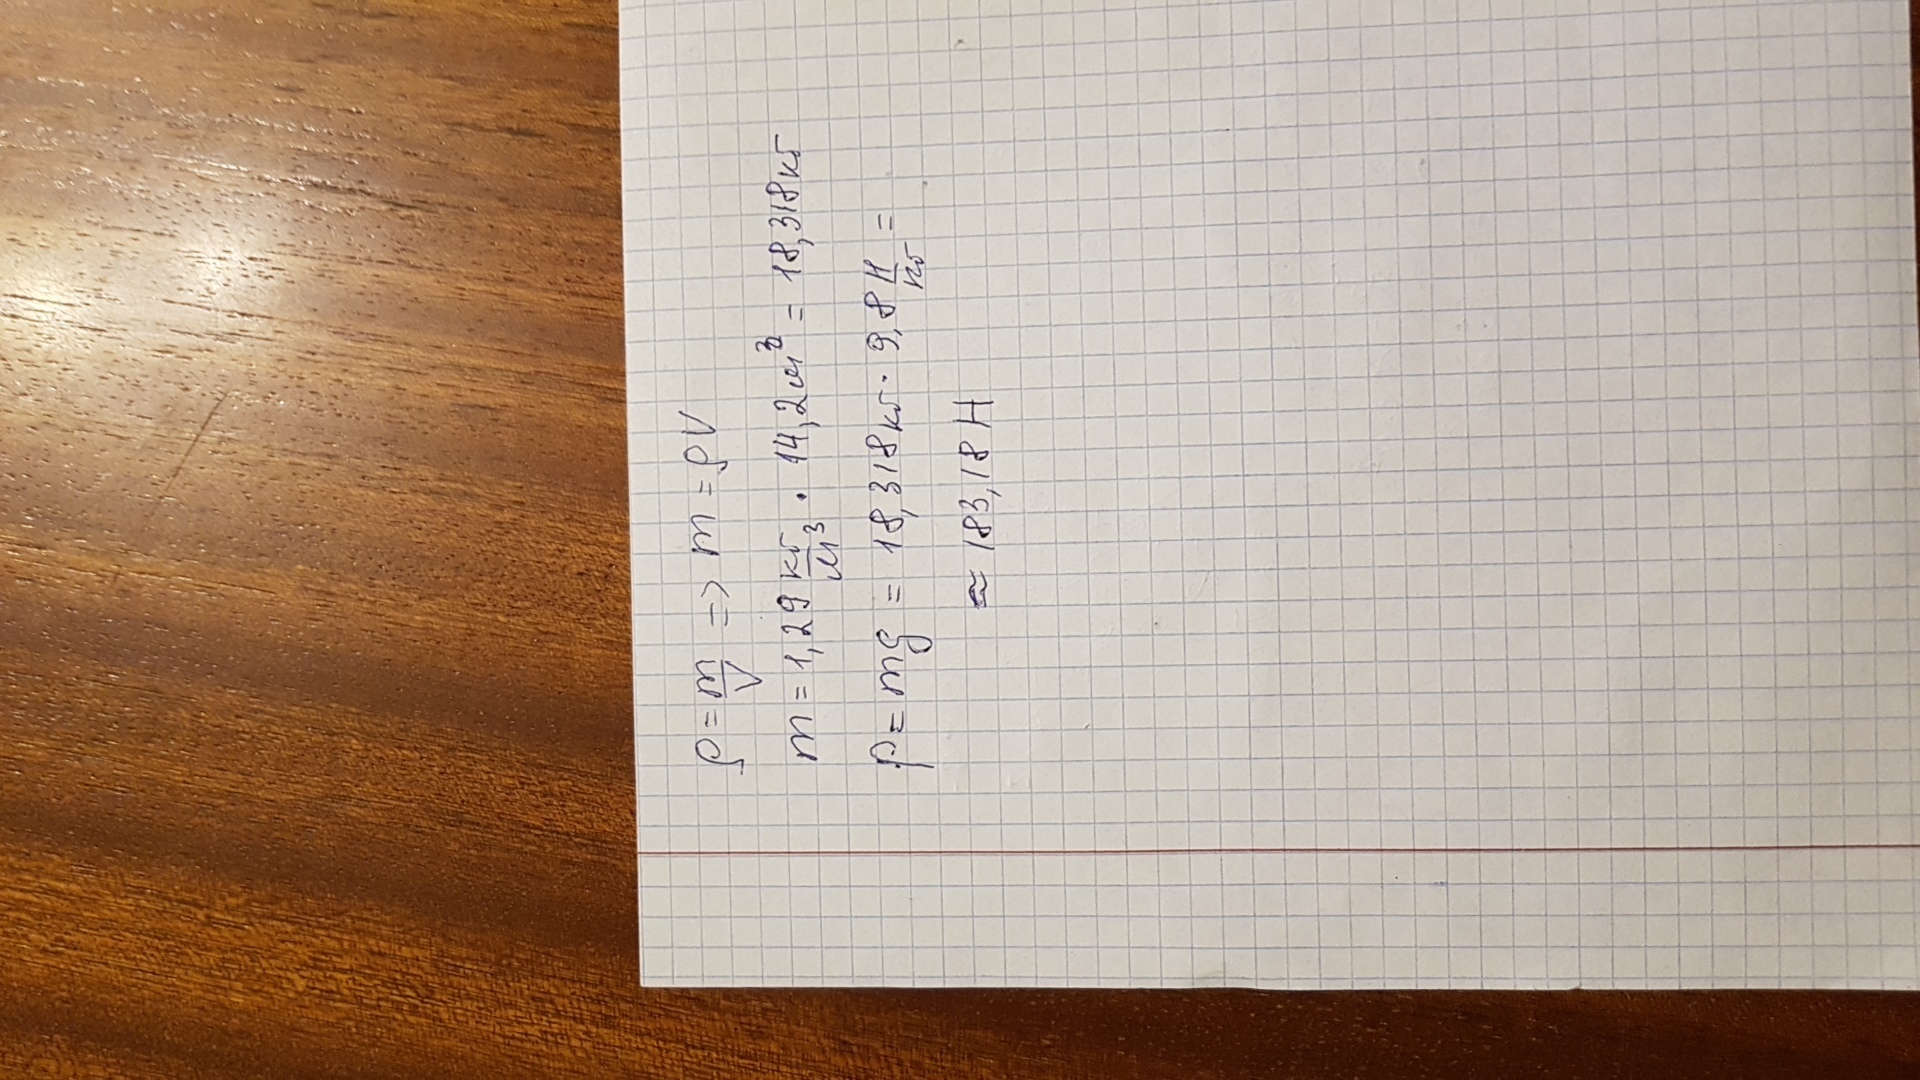 ρ = m/V => m = ρV
m = 1,29 кг/м³ · 14,2 м³ = 18,318 кг
P = mg = 18,318 кг · 9,8 Н/кг =
≈ 183,18 Н